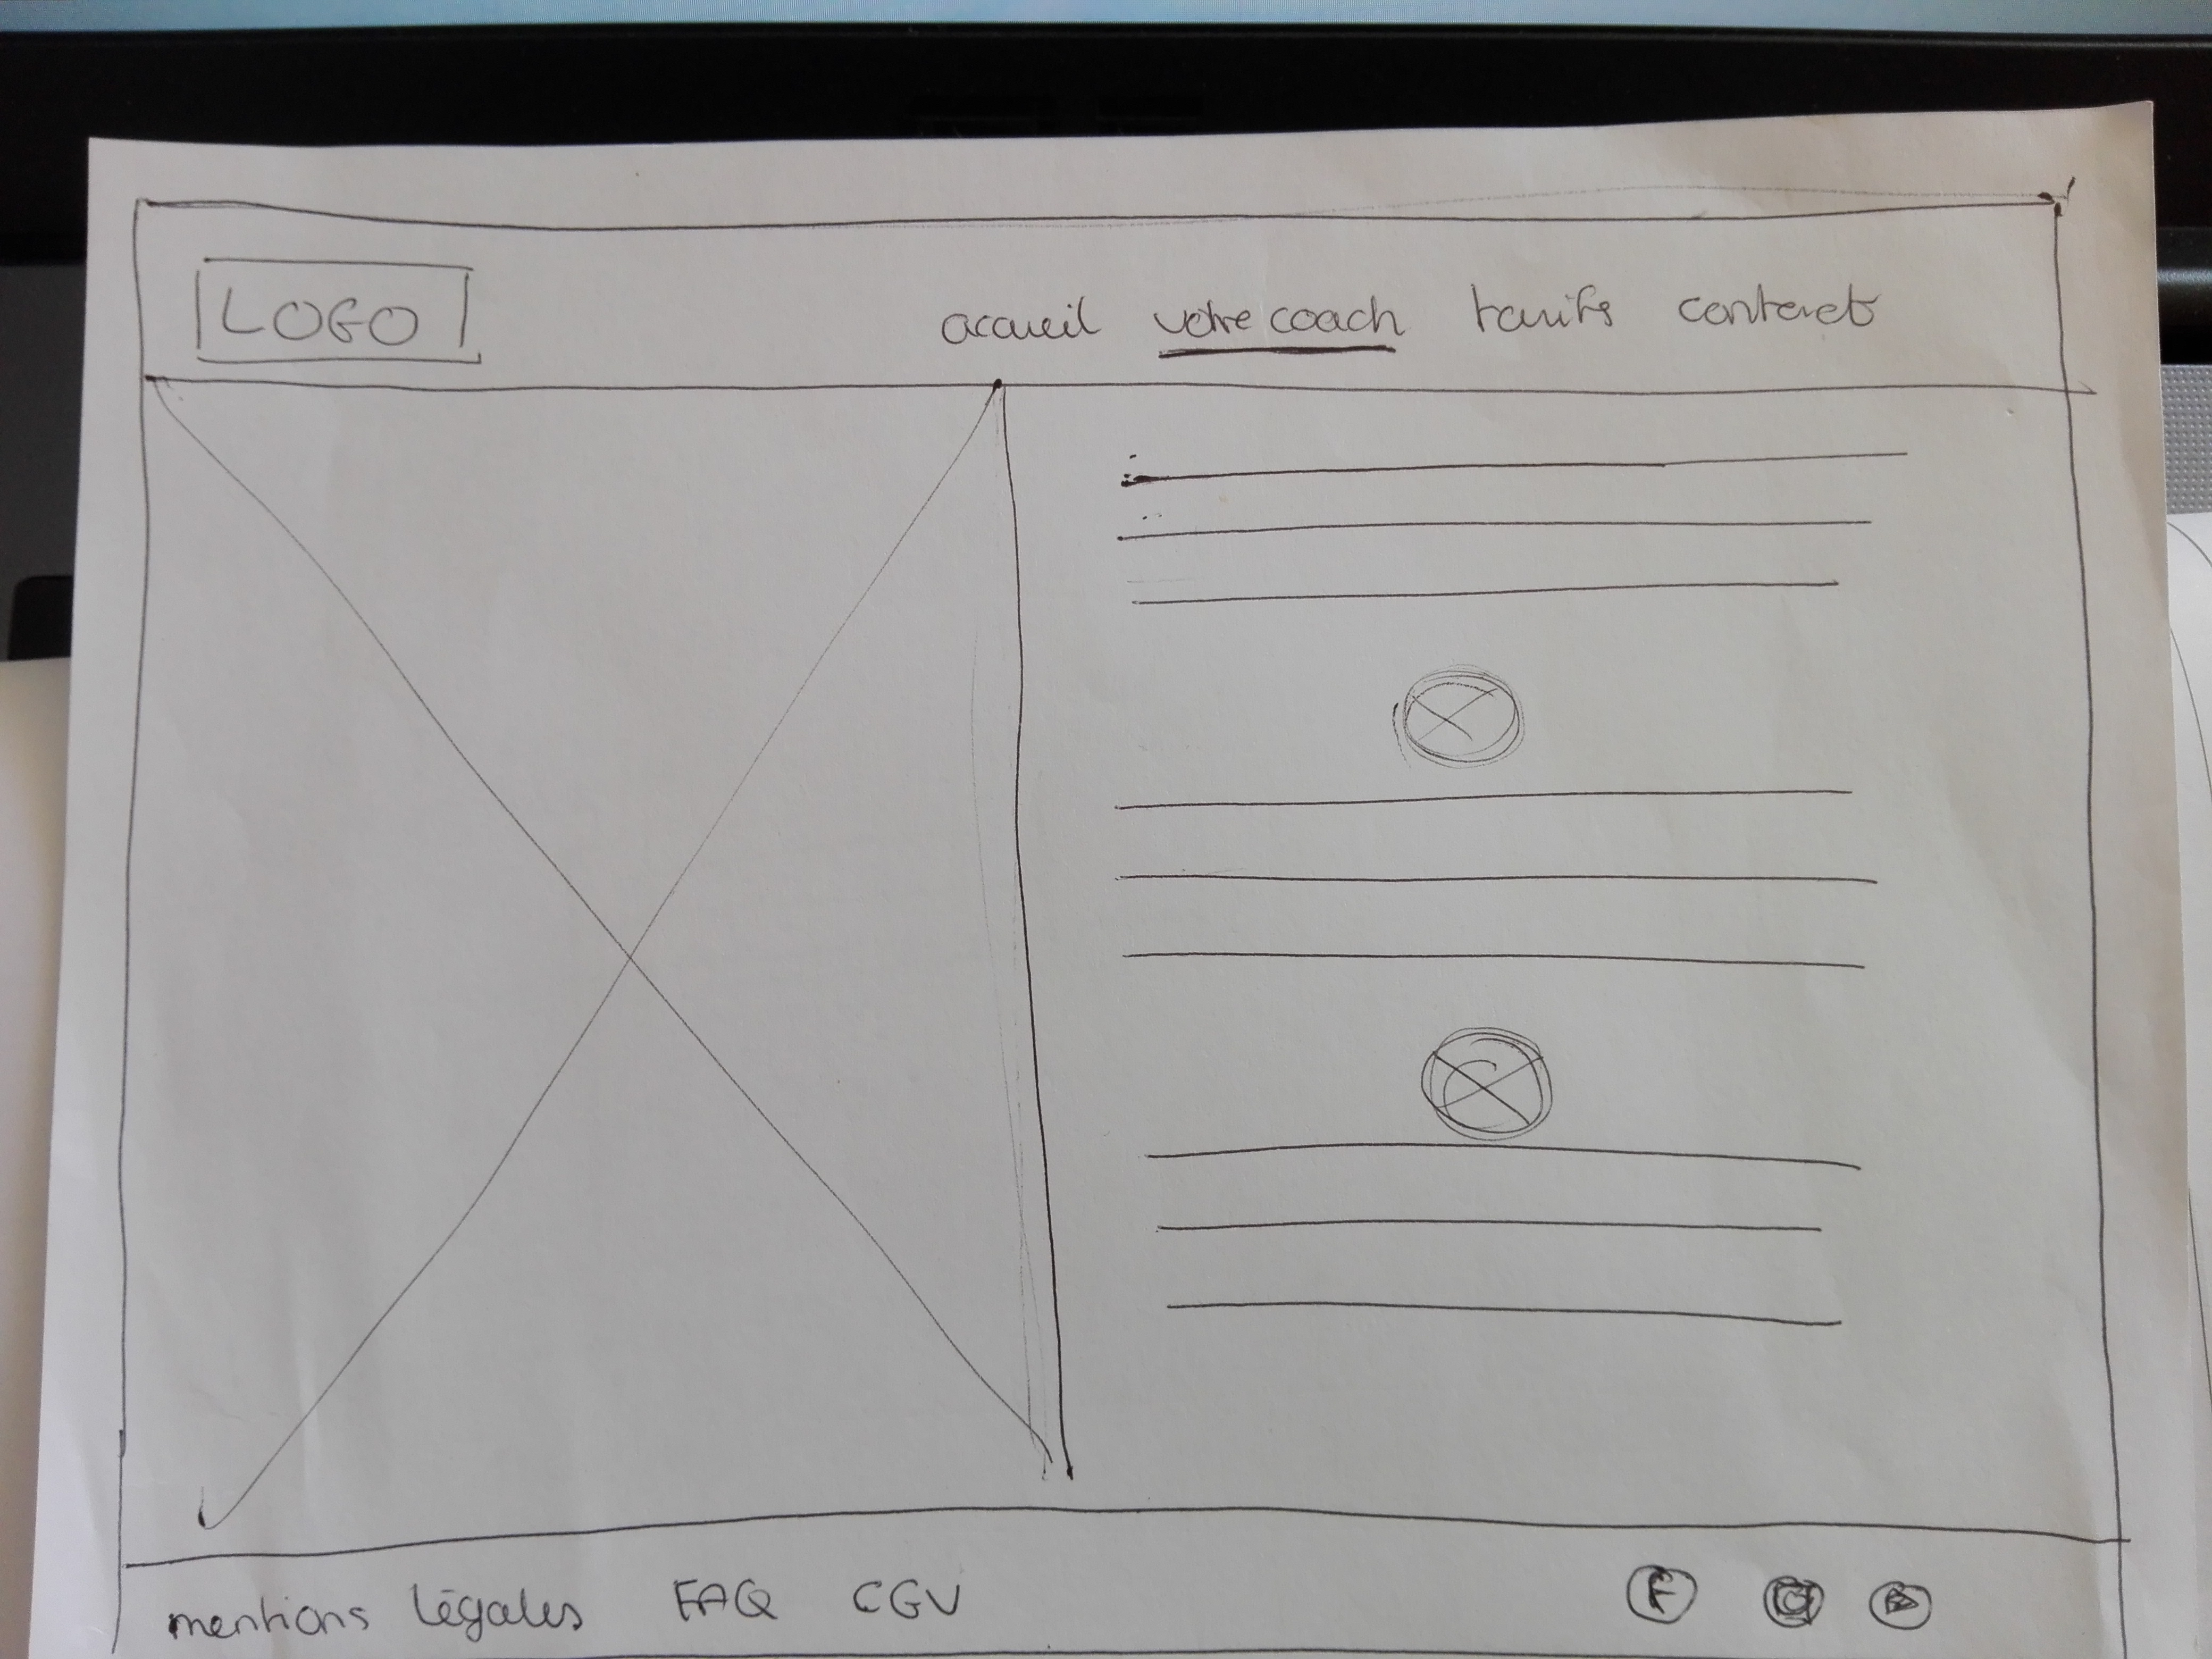 LOGO
accueil votre coach tarifs contact
mentions légales FAQ CGV F